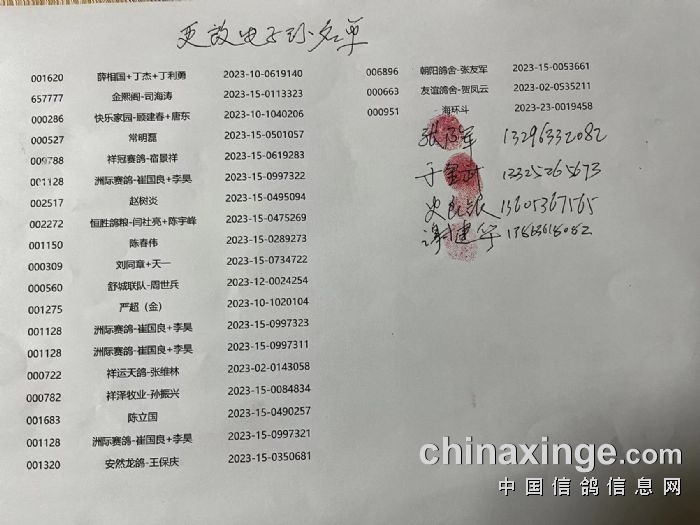 更改电子环名单
001620 薛相国+丁杰+丁利勇 2023-10-0619140
657777 金熙阁-司海涛 2023-15-0113323
000286 快乐家园-顾建春+唐东 2023-10-1040206
000527 常明磊 2023-15-0501057
009788 祥冠赛鸽-宿景祥 2023-15-0619283
001128 洲际赛鸽-崔国良+李昊 2023-15-0997322
002517 赵树炎 2023-15-0495094
002272 恒胜鸽粮-闫社亮+陈宇峰 2023-15-0475269
001150 陈春伟 2023-15-0289273
000309 刘同章+天一 2023-15-0734722
000560 舒城联队-周世兵 2023-12-0024254
001275 严超（金） 2023-10-1020104
001128 洲际赛鸽-崔国良+李昊 2023-15-0997323
001128 洲际赛鸽-崔国良+李昊 2023-15-0997311
000722 祥运天鸽-张维林 2023-02-0143058
000782 祥泽牧业-孙振兴 2023-15-0084834
001683 陈立国 2023-15-0490257
001128 洲际赛鸽-崔国良+李昊 2023-15-0997321
001320 安然龙鸽-王保庆 2023-15-0350681
006896 朝阳鸽舍-张友军 2023-15-0053661
000663 友谊鸽舍-贺凤云 2023-02-0535211
000951 海环斗 2023-23-0019458
13296332082
13325265673
13605367565
谢建华
chinaxinge.com
中国信鸽信息网